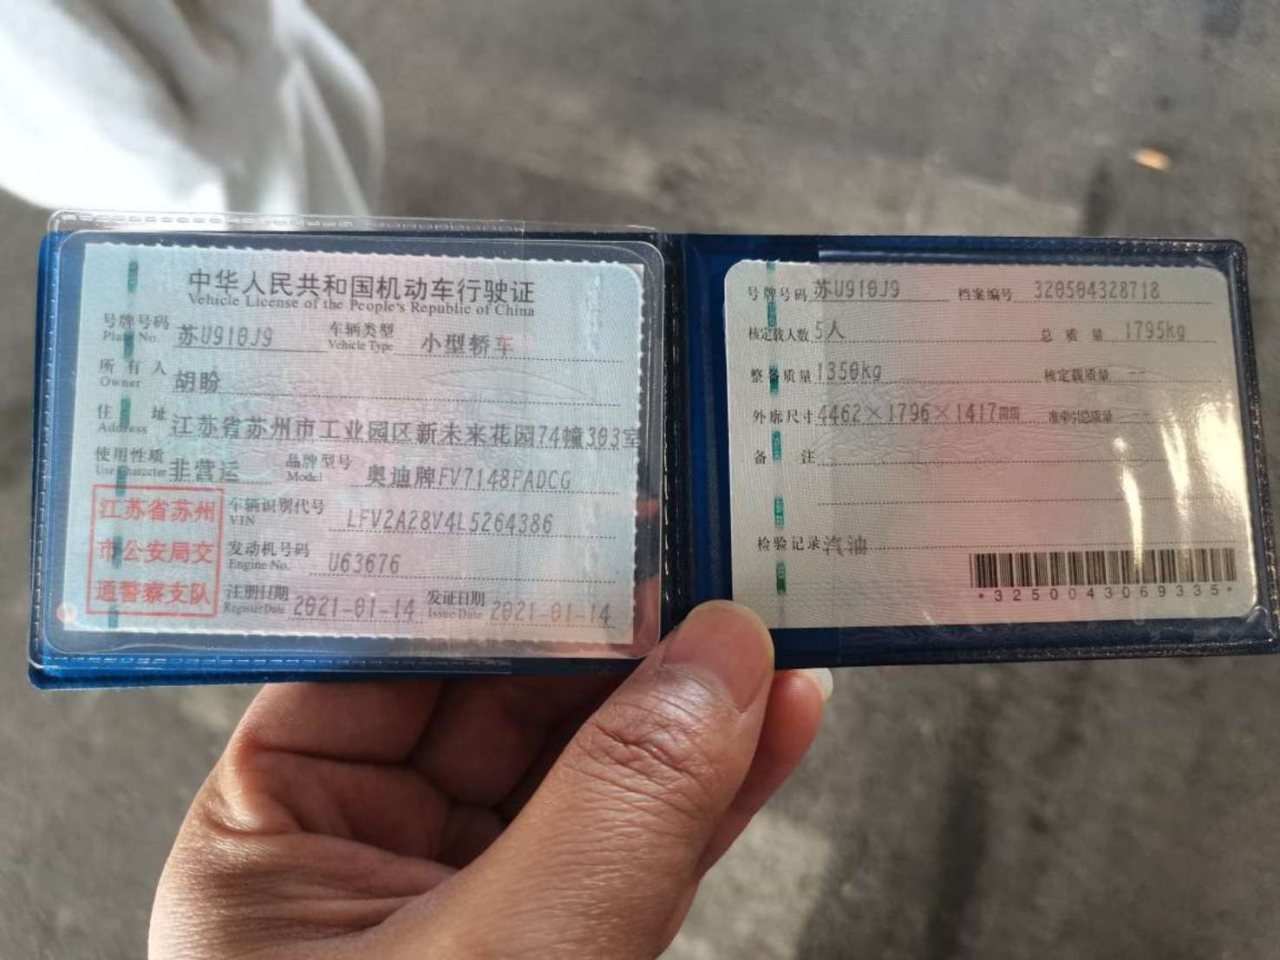 中华人民共和国机动车行驶证
Vehicle License of the People's Republic of China
号牌号码 苏U910J9 车辆类型 小型轿车
Plate No. Vehicle Type
所有人 胡盼
Owner
住址 江苏省苏州市工业园区新未来花园74幢303室
Address
使用性质 非营运 品牌型号 奥迪牌FV7148FADCG
Use Character Model
江苏省苏州
市公安局交
通警察支队
车辆识别代号 LFV2A28V4L5264386
VIN
发动机号码 U63676
Engine No.
注册日期 2021-01-14 发证日期 2021-01-14
Register Date Issue Date
号牌号码 苏U910J9 档案编号 320504328718
核定载人数 5人 总质量 1795kg
整备质量 1350kg 核定载质量 --
外廓尺寸 4462×1796×1417mm 准牵引总质量 --
备注
检验记录 汽油
*3250043069335*